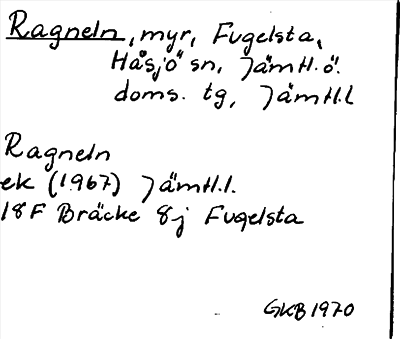 Ragneln, myr, Fugelsta,
Håsjö sn, Jämtl. ö.
doms. tg, Jämtl.l
Ragneln
ek (1967) Jämtl.l.
18F Bräcke 8j Fugelsta
GKB 1970